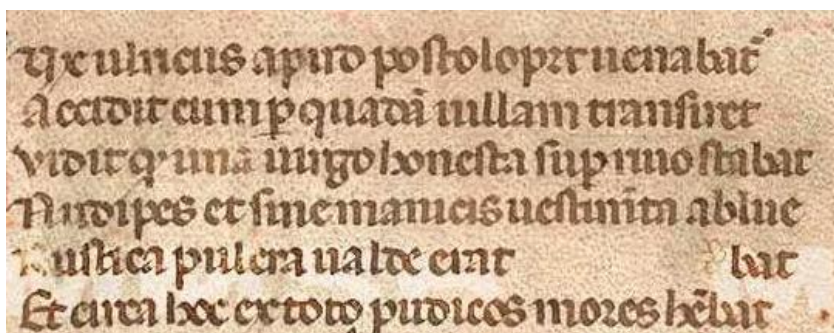 Dux ulricus apud postoloprt uenabat᷑
Accidit cum ꝑ quadā uillam transiret
Vidit q' una uirgo honesta sup riuo stabat
Nudipes et sine manicis uestim̄ta ablue
Rustica pulcra ualde erat bat
Et circa hoc ex toto pudicos mores hēbat